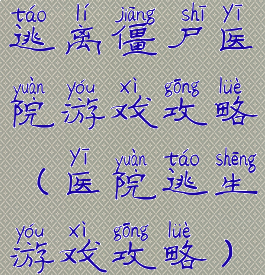 táo lí jiāng shī yī
逃离僵尸医
yuàn yóu xì gōng lüè
院游戏攻略
yī yuàn táo shēng
（医院逃生
yóu xì gōng lüè
游戏攻略）